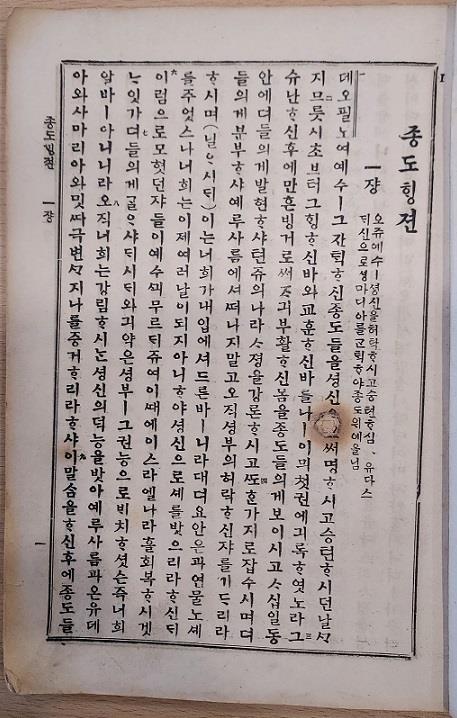 종도ᄒᆡᆼ젼
一쟝
오쥬예수ㅣ셩신을허락ᄒᆞ시고승텬ᄒᆞ심、유다스
ᄃᆡ신으로셩마디아를교ᄐᆡᆨᄒᆞ야종도위예올님
데오필노여예수ㅣ그간ᄐᆡᆨᄒᆞ신종도들을셩신써명ᄒᆞ시고승텬ᄒᆞ시던날ᄭᆞ
지므릇시초브터그ᄒᆡᆼᄒᆞ신바와교훈ᄒᆞ신바들나ㅣ이믜첫권에긔록ᄒᆞ엿노라그
슈난ᄒᆞ신후에만흔빙거로써ᄌᆞ긔부활ᄒᆞ신몸을종도들의게보이시고ᄉᆞ십일동
안에뎌들의게발현ᄒᆞ샤텬쥬의나라ᄉᆞ졍을강론ᄒᆞ시고ᄯᅩᄒᆞᆫ가지로잡수시며뎌
들의게분부ᄒᆞ샤예루사름에셔ᄯᅥ나지말고오직셩부의허락ᄒᆞ신쟈를기ᄃᆞ리라
ᄒᆞ시며(닐ᄋᆞ시ᄃᆡ)이는너희가내입에셔드른바ㅣ니라대뎌요안은과연물노셰
를주엇스나너희는이제여러날이되지아니ᄒᆞ야셩신으로셰를밧으리라ᄒᆞ신ᄃᆡ
이럼으로모혓던쟈들이예수ᄭᅴ무르ᄃᆡ쥬여이ᄯᅢ에이스라엘나라흘회복ᄒᆞ시겟
ᄂᆞ잇가뎌들의게ᄀᆞᆯᄋᆞ샤ᄃᆡ시ᄃᆡ와긔약은셩부ㅣ그권능으로ᄇᆡ치ᄒᆞ셧슨즉너희
알바ㅣ아니니라오직너희는강림ᄒᆞ시ᄂᆞᆫ셩신의덕능을밧아예루사름과온유데
아와사마리아와밋ᄯᅡ극변ᄭᆞ지나를증거ᄒᆞ리라ᄒᆞ샤이말ᄉᆞᆷ을ᄒᆞ신후에종도들
종도ᄒᆡᆼ젼 一쟝
一